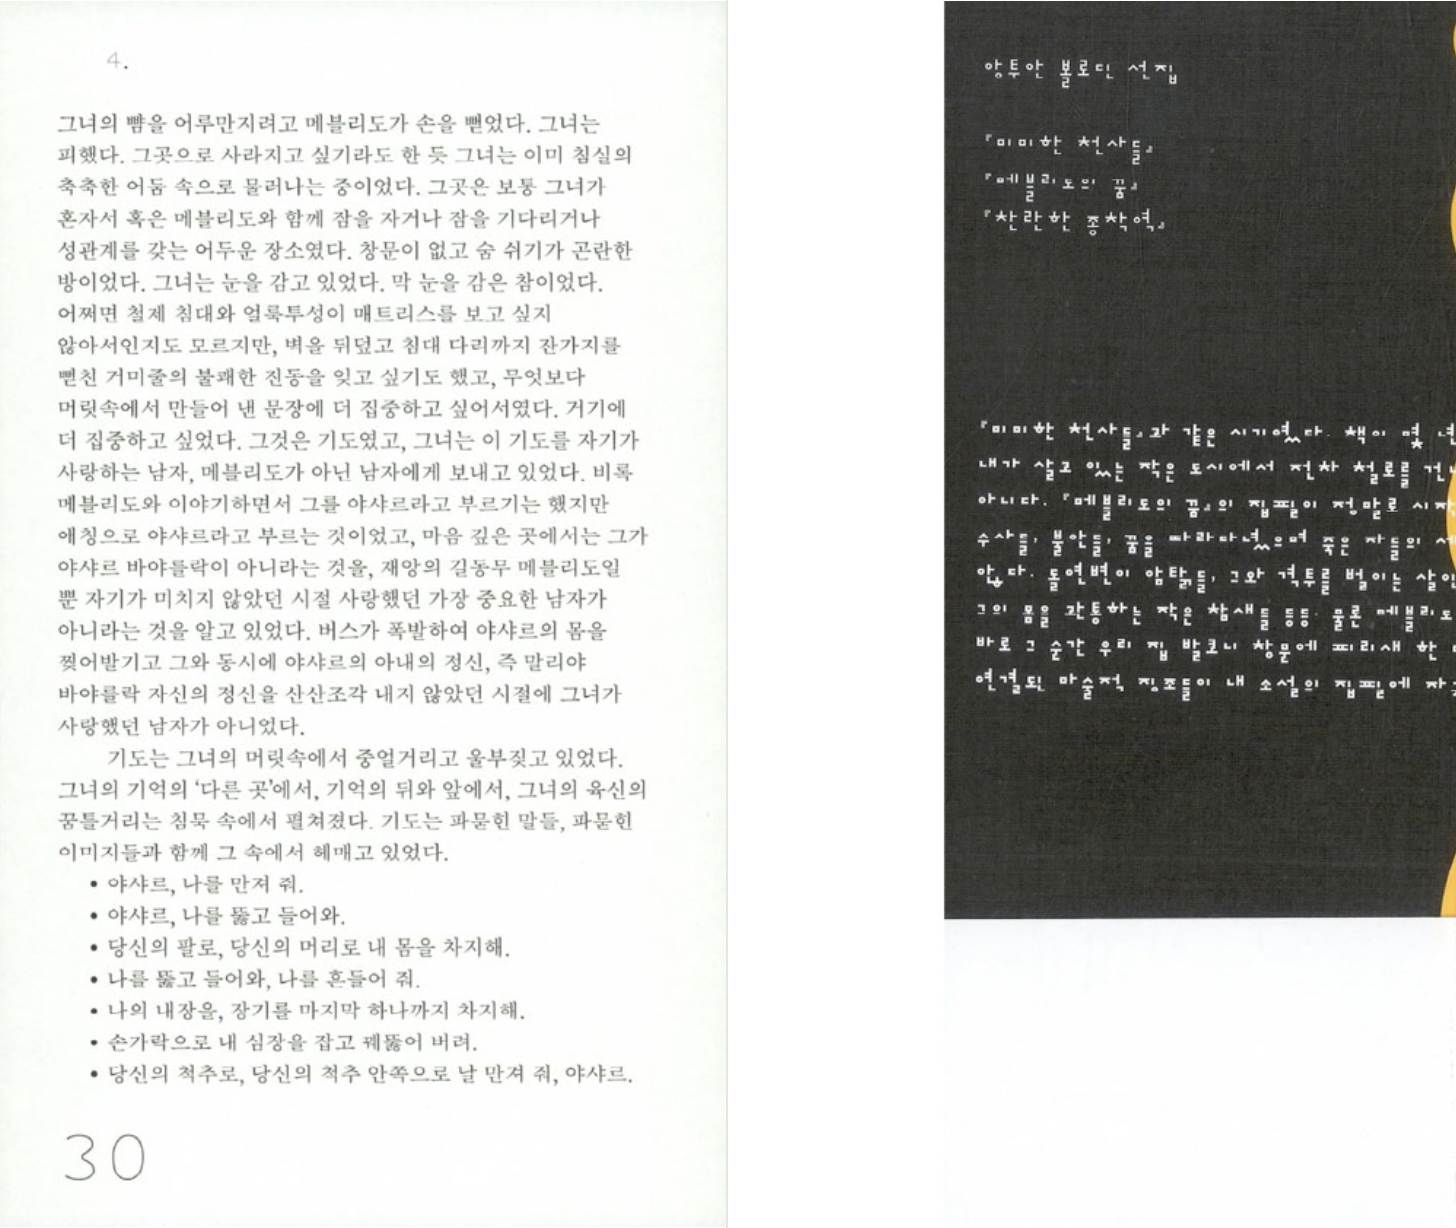 4.
그녀의 뺨을 어루만지려고 메블리도가 손을 뻗었다. 그녀는
피했다. 그곳으로 사라지고 싶기라도 한 듯 그녀는 이미 침실의
축축한 어둠 속으로 물러나는 중이었다. 그곳은 보통 그녀가
혼자서 혹은 메블리도와 함께 잠을 자거나 잠을 기다리거나
성관계를 갖는 어두운 장소였다. 창문이 없고 숨 쉬기가 곤란한
방이었다. 그녀는 눈을 감고 있었다. 막 눈을 감은 참이었다.
어쩌면 철제 침대와 얼룩투성이 매트리스를 보고 싶지
않아서인지도 모르지만, 벽을 뒤덮고 침대 다리까지 잔가지를
뻗친 거미줄의 불쾌한 진동을 잊고 싶기도 했고, 무엇보다
머릿속에서 만들어 낸 문장에 더 집중하고 싶어서였다. 거기에
더 집중하고 싶었다. 그것은 기도였고, 그녀는 이 기도를 자기가
사랑하는 남자, 메블리도가 아닌 남자에게 보내고 있었다. 비록
메블리도와 이야기하면서 그를 야샤르라고 부르기는 했지만
애칭으로 야샤르라고 부르는 것이었고, 마음 깊은 곳에서는 그가
야샤르 바야를락이 아니라는 것을, 재앙의 길동무 메블리도일
뿐 자기가 미치지 않았던 시절 사랑했던 가장 중요한 남자가
아니라는 것을 알고 있었다. 버스가 폭발하여 야샤르의 몸을
찢어발기고 그와 동시에 야샤르의 아내의 정신, 즉 말리야
바야를락 자신의 정신을 산산조각 내지 않았던 시절에 그녀가
사랑했던 남자가 아니었다.
기도는 그녀의 머릿속에서 중얼거리고 울부짖고 있었다.
그녀의 기억의 ‘다른 곳’에서, 기억의 뒤와 앞에서, 그녀의 육신의
꿈틀거리는 침묵 속에서 펼쳐졌다. 기도는 파묻힌 말들, 파묻힌
이미지들과 함께 그 속에서 헤매고 있었다.
• 야샤르, 나를 만져 줘.
• 야샤르, 나를 뚫고 들어와.
• 당신의 팔로, 당신의 머리로 내 몸을 차지해.
• 나를 뚫고 들어와, 나를 흔들어 줘.
• 나의 내장을, 장기를 마지막 하나까지 차지해.
• 손가락으로 내 심장을 잡고 꿰뚫어 버려.
• 당신의 척추로, 당신의 척추 안쪽으로 날 만져 줘, 야샤르.
30
앙투안 볼로딘 선집
『미미한 천사들』
『메블리도의 꿈』
『찬란한 종착역』
『미미한 천사들』과 같은 시기였다. 책이 몇 년
내가 살고 있는 작은 도시에서 전차 철로를 건너
아니다. 『메블리도의 꿈』의 집필이 정말로 시작
수사들, 불안들, 꿈을 따라다녔으며 죽은 자들의 세
않다. 돌연변이 암탉들, 그와 격투를 벌이는 살인
그의 몸을 관통하는 작은 참새들 등등. 물론 메블리도
바로 그 순간 우리 집 발코니 창문에 피리새 한
연결된 마술적 징조들이 내 소설의 집필에 자